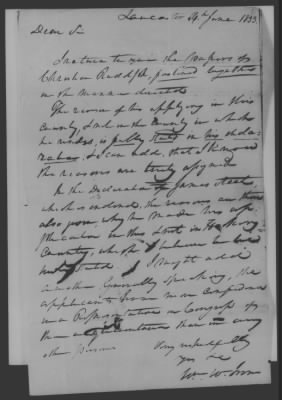 Lancaster 4th June 1833
Dear Sir
I return to you the Papers of
Christian Rudolph, pasted together
in the manner directed
The reason of his applying in this
County, & not in the County in which
he resides, is fully stated in his
& I can add, that I know
the reasons are truly assigned
In the Declaration of James Steel
which is enclosed, the reasons are there
also given, why he made his
in this & not in
County, which I believe to be
I might add
another Generally speaking, the
applicants have more confidence
in a Representative in Congress of
their acquaintance than in any
other person
Very respectfully
yrs &c
Wm